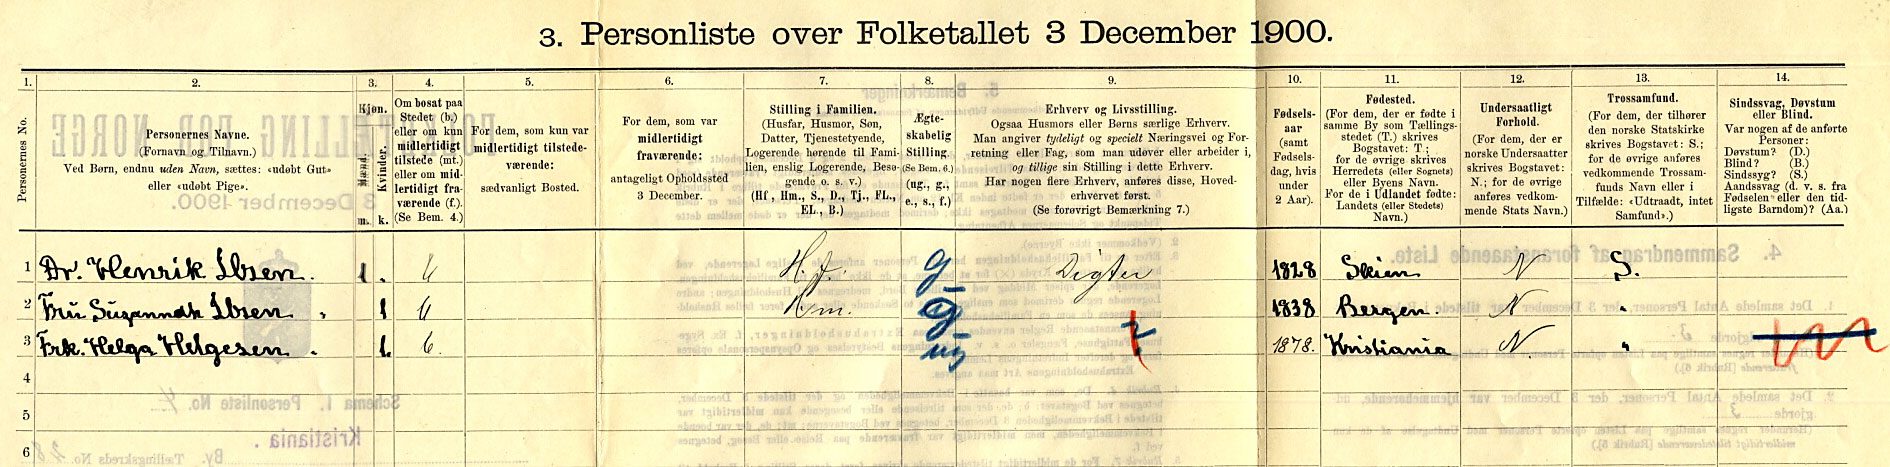 3. Personliste over Folketallet 3 December 1900.
1. 2. 3. 4. 5. 6. 7. 8. 9. 10. 11. 12. 13. 14.
Personernes No.
Personernes Navne.
(Fornavn og Tilnavn.)
Ved Børn, endnu uden Navn, sættes: «udøbt Gut»
eller «udøbt Pige».
Kjøn.
Mænd.
Kvinder.
m. k.
Om bosat paa
Stedet (b.)
eller om kun
midlertidigt
tilstede (mt.)
eller om mid-
lertidigt fra-
værende (f.).
(Se Bem. 4.)
For dem, som kun var
midlertidigt tilstede-
værende:
sædvanligt Bosted.
For dem, som var
midlertidigt
fraværende:
antageligt Opholdssted
3 December.
Stilling i Familien.
(Husfar, Husmor, Søn,
Datter, Tjenestetyende,
Logerende hørende til Fami-
lien, enslig Logerende, Besø-
gende o. s. v.)
(Hf., Hm., S., D., Tj., FL.,
EL., B.)
Ægte-
skabelig
Stilling.
(Se Bem. 6.)
(ug., g.,
e., s., f.)
Erhverv og Livsstilling.
Ogsaa Husmors eller Børns særlige Erhverv.
Man angiver tydeligt og specielt Næringsvei og For-
retning eller Fag, som man udøver eller arbeider i,
og tillige sin Stilling i dette Erhverv.
Har nogen flere Erhverv, anføres disse, Hoved-
erhvervet først.
(Se forøvrigt Bemærkning 7.)
Fødsels-
aar
(samt
Fødsels-
dag, hvis
under
2 Aar).
Fødested.
(For dem, der er fødte i
samme By som Tællings-
stedet (T.) skrives
Bogstavet: T ;
for de øvrige skrives
Herredets (eller Sognets)
eller Byens Navn.
For de i Udlandet fødte:
Landets (eller Stedets)
Navn.)
Undersaatligt
Forhold.
(For dem, der er
norske Undersaatter
skrives Bogstavet:
N.; for de øvrige
anføres vedkom-
mende Stats Navn.)
Trossamfund.
(For dem, der tilhører
den norske Statskirke
skrives Bogstavet: S.;
for de øvrige anføres
vedkommende Trossam-
funds Navn eller i
Tilfælde: «Udtraadt, intet
Samfund».)
Sindssvag, Døvstum
eller Blind.
Var nogen af de anførte
Personer:
Døvstum? (D.)
Blind? (B.)
Sindssyg? (S.)
Aandssvag (d. v. s. fra
Fødselen eller den tid-
ligste Barndom)? (Aa.)
1 Dr. Henrik Ibsen. 1. b H.f. g Digter 1828 Skien N S.
2 Fru Suzannah Ibsen " 1 b Hm. g 1838 Bergen. N "
3 Frk. Helga Helgesen . 1. b. ug 1878. Kristiania N. "
4
5
6